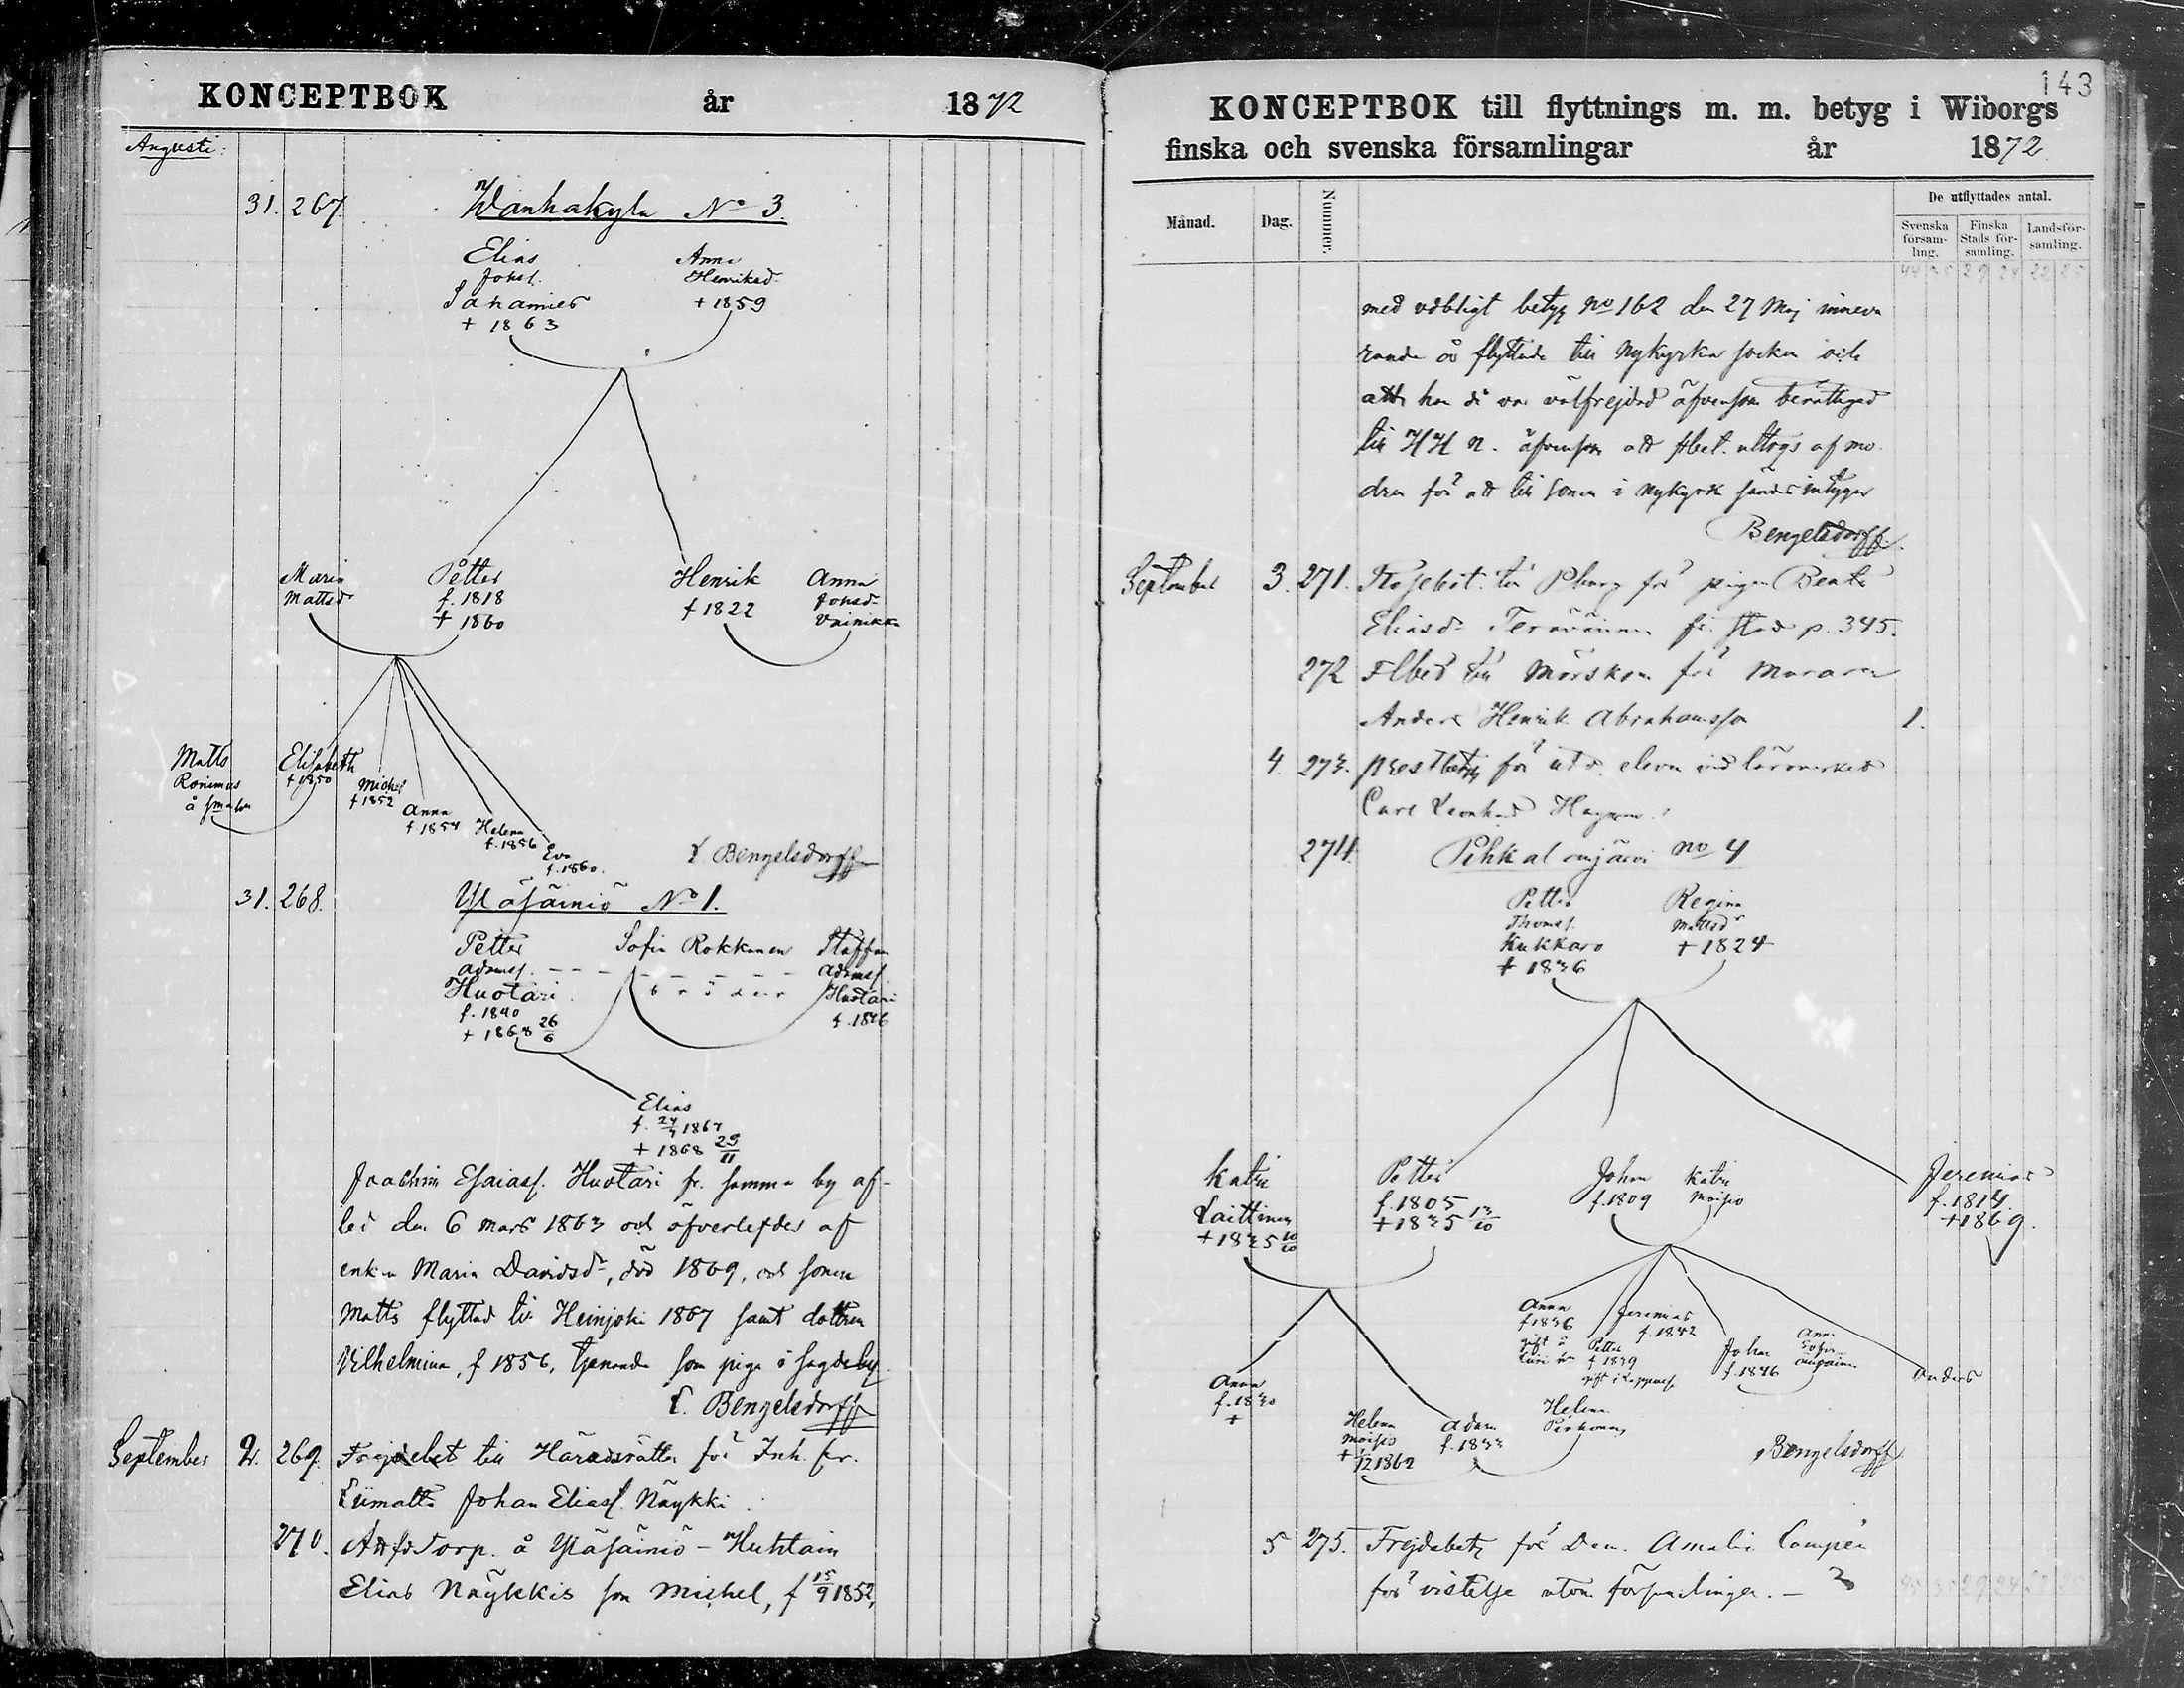 KONCEPTBOK år 1872
Augusti:
31. 267. Wanhakyla No 3.
Elias Anna
Johsf. Henriksd
Sahamies + 1859
+ 1863
Maria Petter Henrik Anna
Mattsd f. 1818 f 1822 Johsd
+ 1860 Vainikka
Matts Elisabeth
Ronimus f 1850 Michel
å f 1852 Anna
f 1854 Helena
f. 1856 Eva
f. 1860.
Bengelsdorff
31. 268. Yläsäiniö No 1.
Petter Sofia Rokkanen Staffan
Adamsf. Adamsf
Huotari bröder Huotari
f. 1840 f. 1846
+ 1868 26/6
Elias
f. 1867
+ 1868 25/11
Joachim Esaiasf. Huotari fr. samma by af-
led den 6 mars 1863 och öfverlefdes af
enkan Maria Davidsd, död 1869, och sonen
Matts flyttad till Heinjoki 1867 samt dottren
Vilhelmina, f 1856, tjenande som piga i
E. Bengelsdorff
September 2. 269. Frejdebet till Häradsrätten för Inh. fr.
Liimatta Johan Eliasf. Näykki
270. Att Torp. å Yläsäiniö - Huhtain
Elias Näykkis son Michel, f 15/9 1852,
143
KONCEPTBOK till flyttnings m. m. betyg i Wiborgs
finska och svenska församlingar år 1872
Månad. Dag. Nummer. De utflyttades antal.
Svenska församling. Finska Stads församling. Landsförsamling.
med betyg No 162 den 27 Maj inneva
rande år flyttade till Nykyrka socken och
att han då var välfrejdad äfvensom berättigad
till H H N. äfvensom att uttogs af mo
dren för att till sonen i Nykyrk sändas intygar
Bengelsdorff.
September 3. 271. till Pburg för pigan Beata
Eliasd fr. stad p. 345.
272 Flbet till Mörskom för Muraren
Anders Henrik Abrahamsson 1.
4. 273. Prestbetyg för utd. eleven vid läroverket
Carl Leonhard
274. Pihkalanjärvi No 4
Petter Regina
Thomsf. Mattsd
Kukkaro + 1824
+ 1836
Katri Petter Johan Katri Jeremias
Laittinen f. 1805 f. 1809 Moisio f. 1814
+ 1835 10/10 + 1835 13/10 + 1869.
Anna Jeremias
f 1836 f. 1842
gift å Petter Johan Anna
f 1839 f. 1846 Sofia
gift i Anders
Anna Helena
f. 1830 Helena Adam
+ Moisio f. 1833
+ 1/12 1862
Bengelsdorff
5 275. Frejdebetyg för Dem. Amalie
för vistelse utom församlingen. —